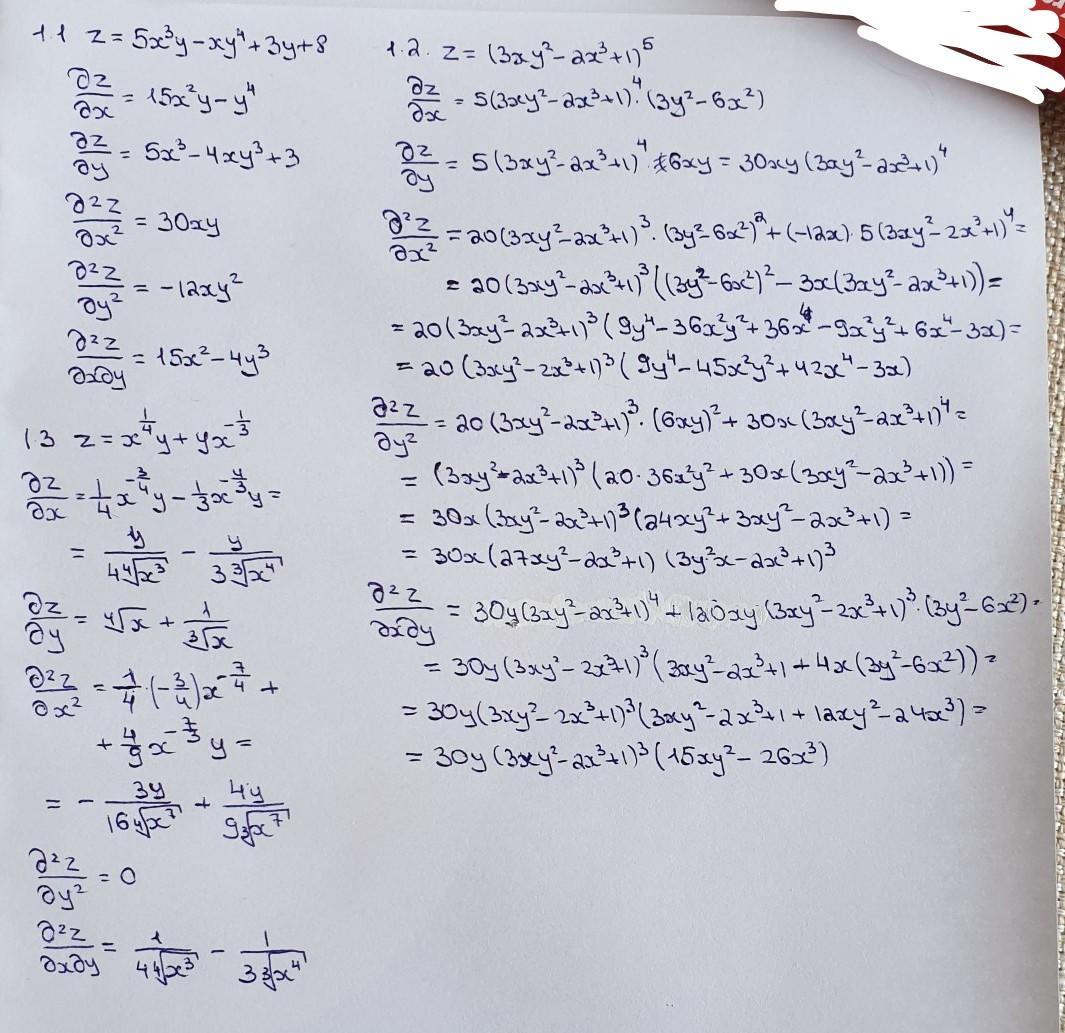 1.1 z = 5x³y − xy⁴ + 3y + 8
∂z/∂x = 15x²y − y⁴
∂z/∂y = 5x³ − 4xy³ + 3
∂²z/∂x² = 30xy
∂²z/∂y² = −12xy²
∂²z/∂x∂y = 15x² − 4y³
1.3 z = x^(1/4)y + yx^(−1/3)
∂z/∂x = 1/4 x^(−3/4)y − 1/3 x^(−4/3)y =
= y/(4∜x³) − y/(3∛x⁴)
∂z/∂y = ∜x + 1/∛x
∂²z/∂x² = 1/4·(−3/4)x^(−7/4) +
+ 4/9 x^(−7/3) y =
= − 3y/(16∜x⁷) + 4y/(9∛x⁷)
∂²z/∂y² = 0
∂²z/∂x∂y = 1/(4∜x³) − 1/(3∛x⁴)
1.2. z = (3xy² − 2x³ + 1)⁵
∂z/∂x = 5(3xy² − 2x³ + 1)⁴·(3y² − 6x²)
∂z/∂y = 5(3xy² − 2x³ + 1)⁴·6xy = 30xy(3xy² − 2x³ + 1)⁴
∂²z/∂x² = 20(3xy² − 2x³ + 1)³·(3y² − 6x²)² + (−12x)·5(3xy² − 2x³ + 1)⁴ =
= 20(3xy² − 2x³ + 1)³((3y² − 6x²)² − 3x(3xy² − 2x³ + 1)) =
= 20(3xy² − 2x³ + 1)³(9y⁴ − 36x²y² + 36x⁴ − 9x²y² + 6x⁴ − 3x) =
= 20(3xy² − 2x³ + 1)³(9y⁴ − 45x²y² + 42x⁴ − 3x)
∂²z/∂y² = 20(3xy² − 2x³ + 1)³·(6xy)² + 30x(3xy² − 2x³ + 1)⁴ =
= (3xy² − 2x³ + 1)³(20·36x²y² + 30x(3xy² − 2x³ + 1)) =
= 30x(3xy² − 2x³ + 1)³(24xy² + 3xy² − 2x³ + 1) =
= 30x(27xy² − 2x³ + 1)(3y²x − 2x³ + 1)³
∂²z/∂x∂y = 30y(3xy² − 2x³ + 1)⁴ + 120xy(3xy² − 2x³ + 1)³·(3y² − 6x²) =
= 30y(3xy² − 2x³ + 1)³(3xy² − 2x³ + 1 + 4x(3y² − 6x²)) =
= 30y(3xy² − 2x³ + 1)³(3xy² − 2x³ + 1 + 12xy² − 24x³) =
= 30y(3xy² − 2x³ + 1)³(15xy² − 26x³)